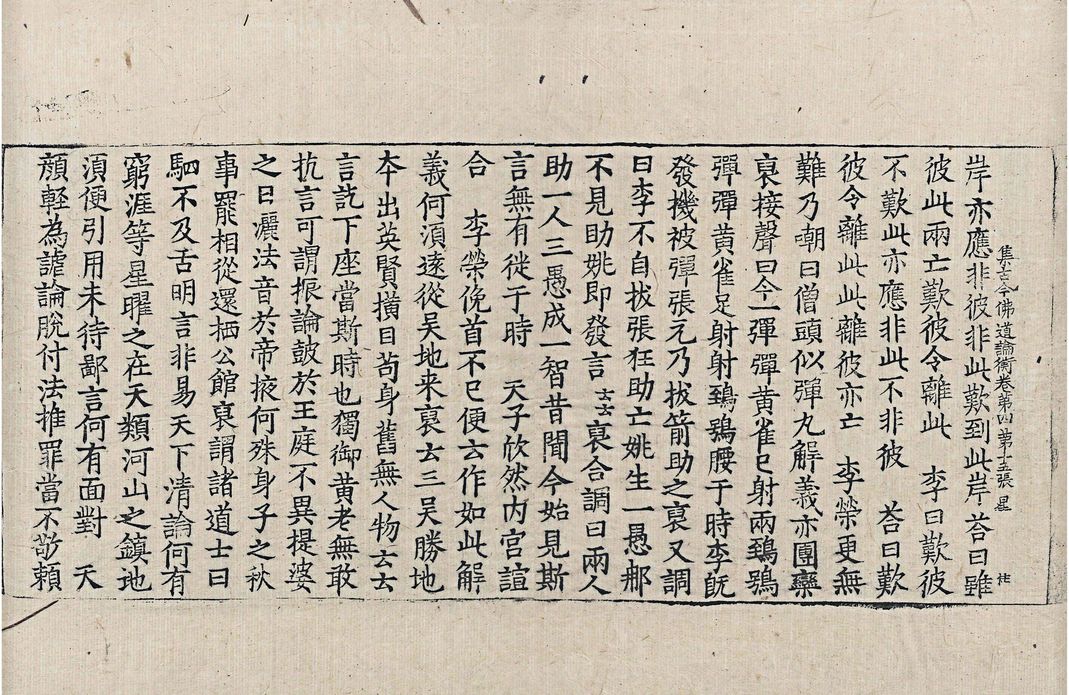 集古今佛道論衡卷第四 第十五張 星
岸亦應非彼非此歎到此岸 荅曰雖
彼此兩亡歎彼令離此 李曰歎彼
不歎此亦應非此不非彼 荅曰歎
彼令離此此離彼亦亡 李榮更無
難乃嘲曰僧頭似彈丸解義亦團欒
裒接聲曰今一彈彈黃雀已射兩鵄鴞
彈彈黃雀足射射鵄鴞腰于時李旣
發機被彈張元乃拔箭助之裒又調
曰李不自拔張狂助亡姚生一愚郍
不見助姚即發言云云裒合調曰兩人
助一人三愚成一智昔聞今始見斯
言無有從于時 天子欣然內宮諠
合 李榮俛首不已便云作如此解
義何須遠從吴地来裒云三吴勝地
夲出英賢橫曰苟身舊無人物云云
言訖下座當斯時也獨御黃老無敢
抗言可謂振論鼓於王庭不異提婆
之日灑法音於帝掖何殊身子之秋
事罷相從還栖公館裒謂諸道士曰
駟不及舌明言非易天下清論何有
窮涯等星曜之在天類河山之鎮地
湏便引用未待鄙言何有面對 天
顔輕為謔論脫付法推罪當不敬賴